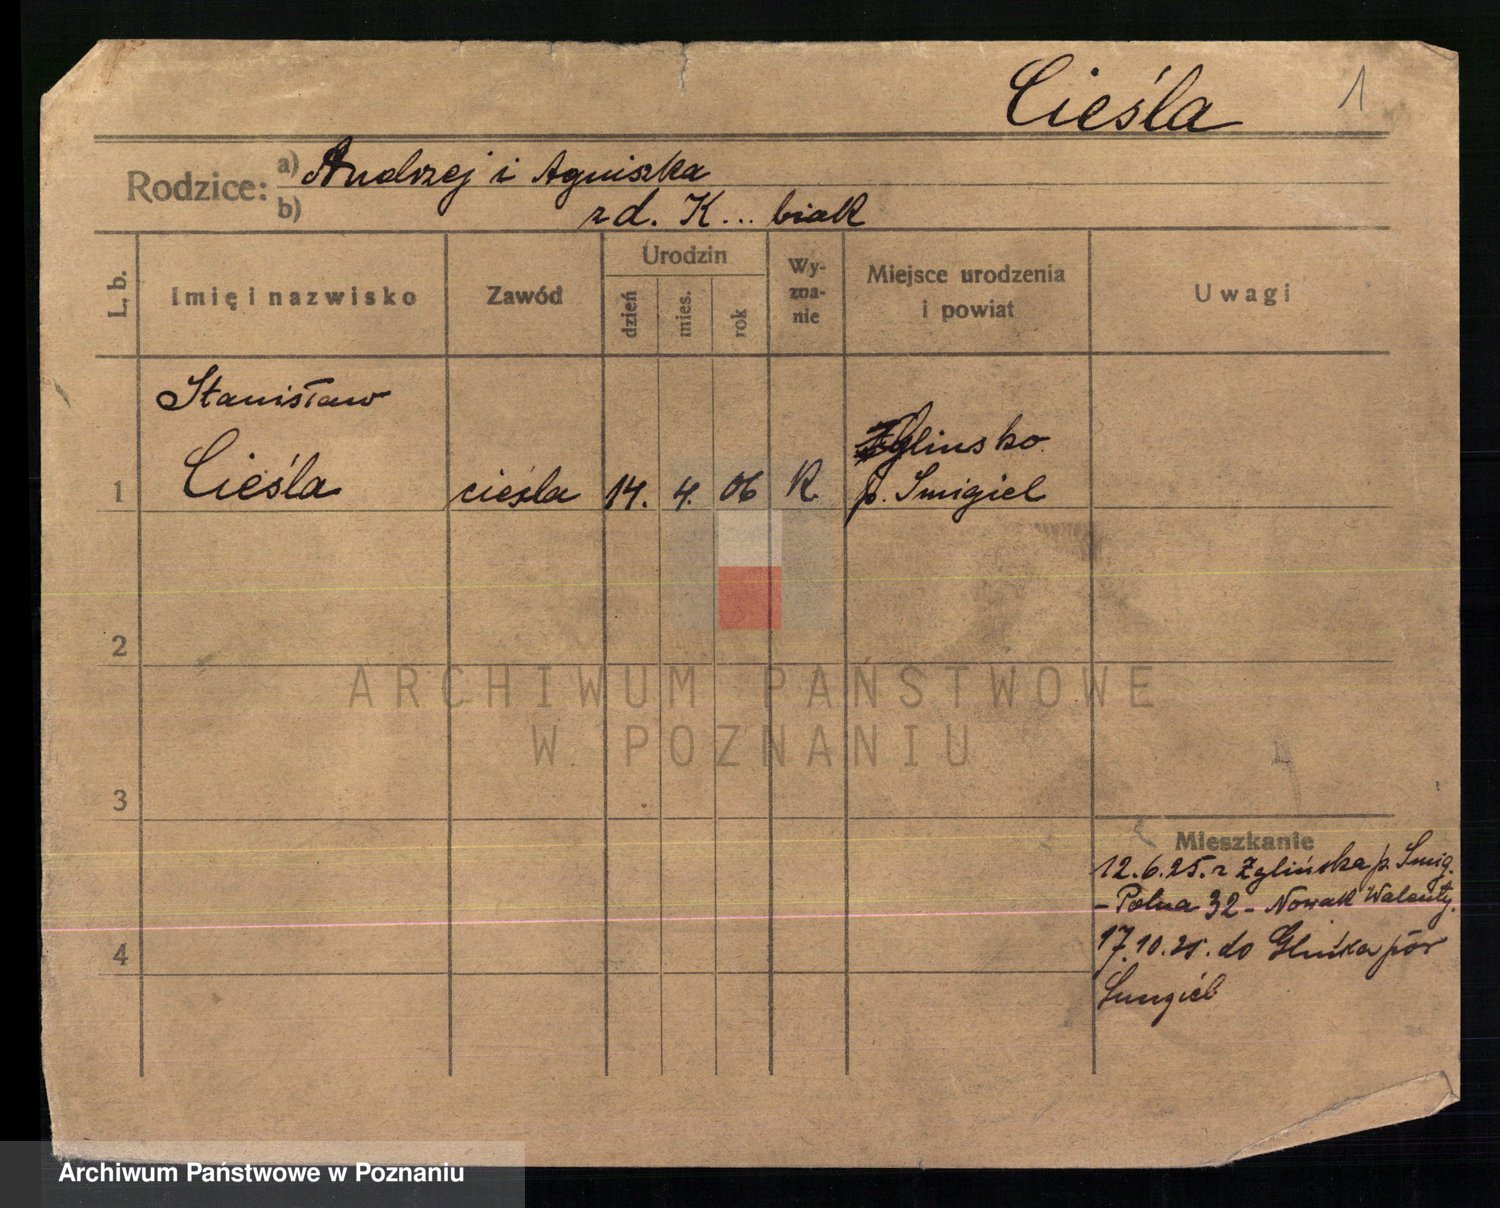 Cieśla 1
Rodzice: a) Andrzej i Agniszka
b) zd. K... biak
L. b. Imię i nazwisko Zawód Urodzin dzień mies. rok Wy-zna-nie Miejsce urodzenia i powiat Uwagi
Stanisław
Zglinsko
1 Cieśla cieśla 14. 4. 06 R. p. Smigiel
2
3
Mieszkanie
12.6.25. z Zglińska p. Smig.
- Polna 32 - Nowak Walenty.
4 17.10.25. do Glińska
ARCHIWUM PAŃSTWOWE
W POZNANIU
Archiwum Państwowe w Poznaniu